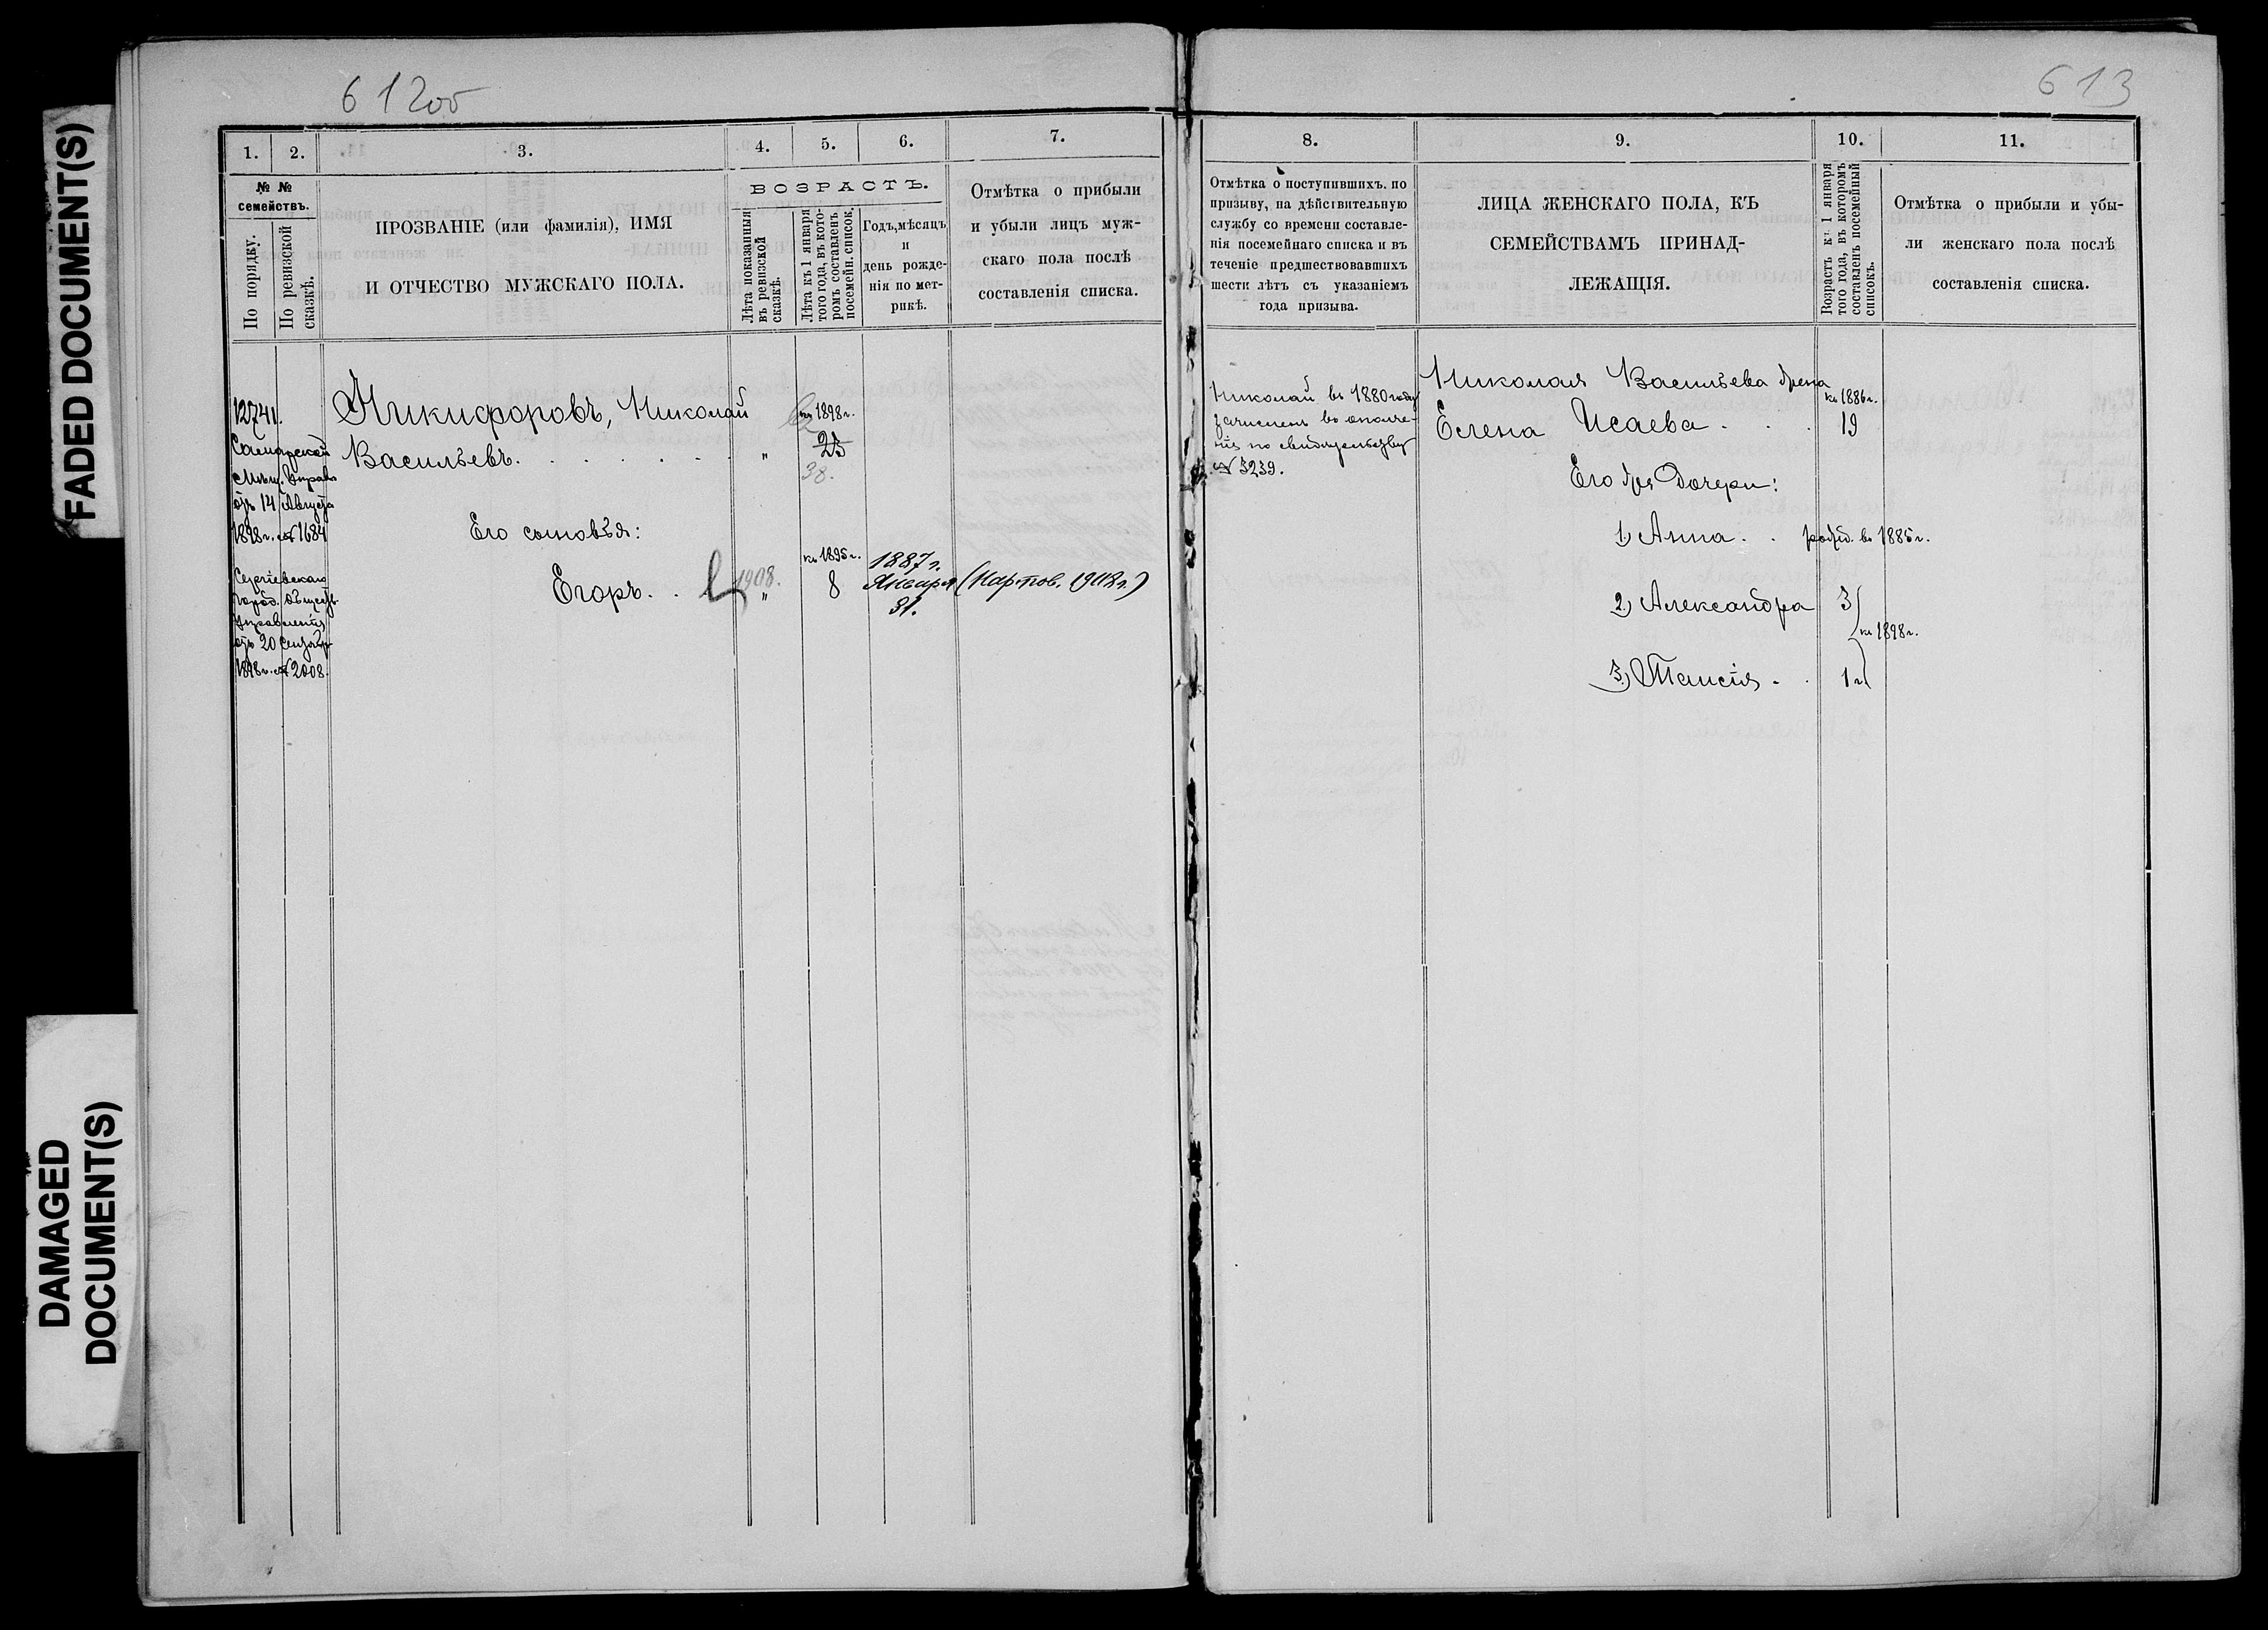 FADED DOCUMENT(S)
DAMAGED
DOCUMENT(S)
612об
1. 2. 3. 4. 5. 6. 7.
№ №
семействъ.
По порядку.
По ревизской
сказкѣ.
ПРОЗВАНІЕ (или фамилія), ИМЯ
И ОТЧЕСТВО МУЖСКАГО ПОЛА.
ВОЗРАСТЪ.
Лѣта показанныя
въ ревизской
сказкѣ.
Лѣта къ 1 января
того года, въ кото-
ромъ составленъ
посемейн. список.
Годъ, мѣсяцъ
и
день рожде-
нія по мет-
рикѣ.
Отмѣтка о прибыли
и убыли лицъ муж-
скаго пола послѣ
составленія списка.
12741.
Самарской
Мѣщ. Управы
отъ 14 Августа
1898 г. № 1684
Сергіевскаго
город. Обществ.
Управленія
отъ 20 Сентября
1898 г. № 2008.
Никифоровъ, Николай
Васильевъ. . . . . . . "
къ 1898 г.
25
38.
Его сыновья:
Егоръ. . 1908. "
къ 1895 г.
8
1887 г.
Января
31.
613
8. 9. 10. 11.
Отмѣтка о поступившихъ. по
призыву, на дѣйствительную
службу со времени составле-
нія посемейнаго списка и въ
теченіе предшествовавшихъ
шести лѣтъ съ указаніемъ
года призыва.
ЛИЦА ЖЕНСКАГО ПОЛА, КЪ
СЕМЕЙСТВАМЪ ПРИНАД-
ЛЕЖАЩІЯ.
Возрастъ къ 1 января
того года, въ которомъ
составленъ посемейный
списокъ.
Отмѣтка о прибыли и убы-
ли женскаго пола послѣ
составленія списка.
Николай въ 1880 году
зачисленъ въ ополче-
ніе по свидѣтельству
№ 3239.
Николая Васильева жена
Елена Исаева . . .
къ 1886 г.
19
Его дочери:
1) Анна. . рожд. въ 1885 г.
2) Александра 3
къ 1898 г.
3) Таисія. . 1 г.